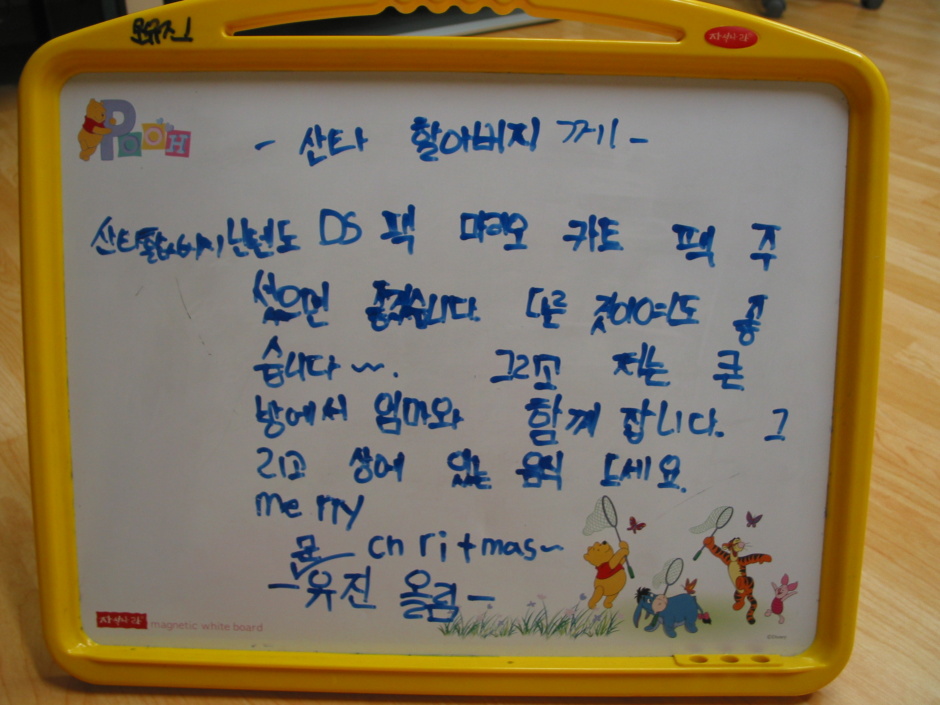 POOH
- 산타 할아버지 께 -
산타할아버지 닌텐도 DS 팩 마리오 카트 팩 주
셨으면 좋겠습니다. 다른 것이여도 좋
습니다~. 그리고 저는 큰
방에서 엄마와 함께 잡니다. 그
리고 상에 있는 음식 드세요.
merry
chritmas~
-유진 올림-
자석나라 magnetic white board
©Disney